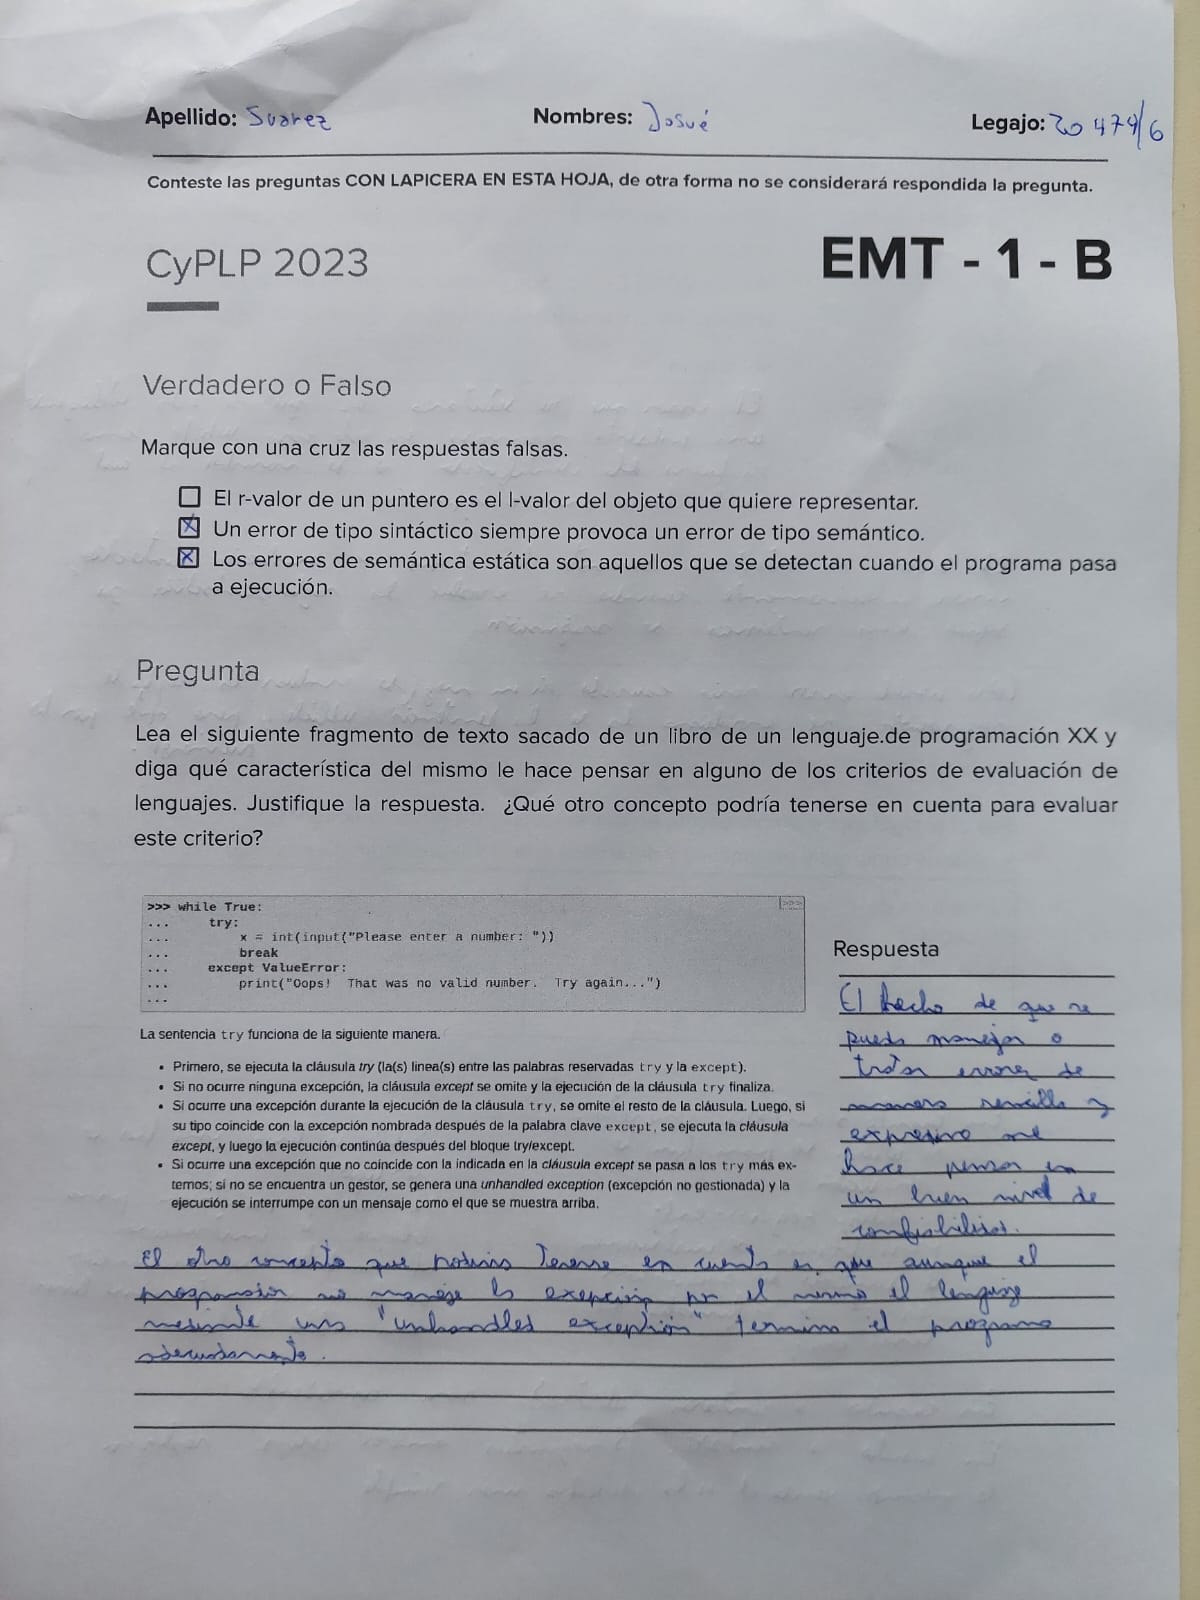 Apellido: Suarez Nombres: Josué Legajo: 20 474/6
Conteste las preguntas CON LAPICERA EN ESTA HOJA, de otra forma no se considerará respondida la pregunta.
CyPLP 2023
EMT - 1 - B
Verdadero o Falso
Marque con una cruz las respuestas falsas.
El r-valor de un puntero es el l-valor del objeto que quiere representar.
X Un error de tipo sintáctico siempre provoca un error de tipo semántico.
X Los errores de semántica estática son aquellos que se detectan cuando el programa pasa
a ejecución.
Pregunta
Lea el siguiente fragmento de texto sacado de un libro de un lenguaje.de programación XX y
diga qué característica del mismo le hace pensar en alguno de los criterios de evaluación de
lenguajes. Justifique la respuesta. ¿Qué otro concepto podría tenerse en cuenta para evaluar
este criterio?
>>> while True: >>>
... try:
... x = int(input("Please enter a number: "))
... break
... except ValueError:
... print("Oops! That was no valid number. Try again...")
...
La sentencia try funciona de la siguiente manera.
• Primero, se ejecuta la cláusula try (la(s) linea(s) entre las palabras reservadas try y la except).
• Si no ocurre ninguna excepción, la cláusula except se omite y la ejecución de la cláusula try finaliza.
• Si ocurre una excepción durante la ejecución de la cláusula try, se omite el resto de la cláusula. Luego, si
su tipo coincide con la excepción nombrada después de la palabra clave except, se ejecuta la cláusula
except, y luego la ejecución continúa después del bloque try/except.
• Si ocurre una excepción que no coincide con la indicada en la cláusula except se pasa a los try más ex-
ternos; si no se encuentra un gestor, se genera una unhandled exception (excepción no gestionada) y la
ejecución se interrumpe con un mensaje como el que se muestra arriba.
Respuesta
El hecho de que se
pueda manejar o
tratar errores de
manera sencilla y
expresiva me
hace pensar en
un buen nivel de
confiabilidad.
El otro concepto que podria tenerse en cuenta es que aunque el
programador no maneje la exepción por el mismo el lenguaje
mediante una "unhandles exception" termina el programa
adecuadamente.